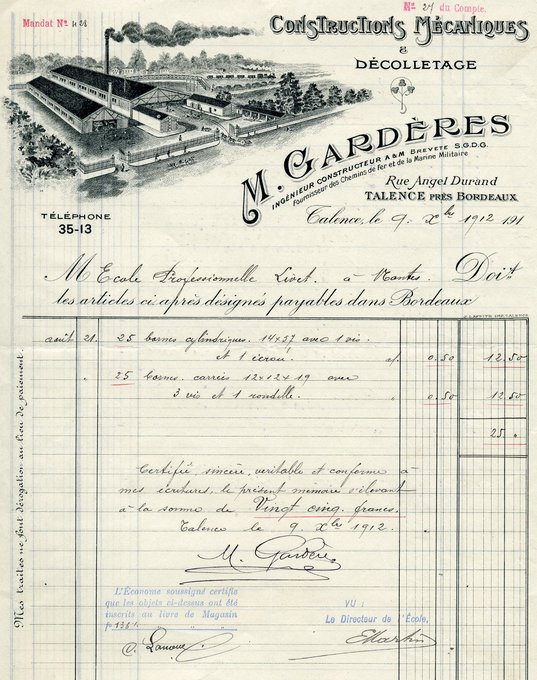 Mandat Nº 428
Nº 27 du Compte.
CONSTRUCTIONS MÉCANIQUES
&
DÉCOLLETAGE
M. GARDÈRES
INGÉNIEUR CONSTRUCTEUR A&M BREVETÉ S.G.D.G.
Fournisseur des Chemins de Fer et de la Marine Militaire
Rue Angel Durand
TALENCE PRÈS BORDEAUX
TÉLÉPHONE
35-13
Talence, le 9 Xbre 1912 191
M Ecole Professionnelle Livet à Nantes. Doit
les articles ci après désignés payables dans Bordeaux
août 21. 25 bornes cylindriques. 14x37 avec 1 vis.
et 1 écrou. 0.50 12.50
25 bornes carrées 12x12x19 avec
3 vis et 1 rondelle. " 0.50 12.50
25 "
Certifié, sincère, véritable et conforme à
mes écritures, le présent mémoire s'élevant
à la somme de Vingt cinq francs.
Talence le 9 Xbre 1912.
M. Gardères
Mes traites ne font dérogation au lieu de paiement.
L'Économe soussigné certifie
que les objets ci-dessus ont été
inscrits au livre de Magasin
VU :
Le Directeur de l'École,
EMartin